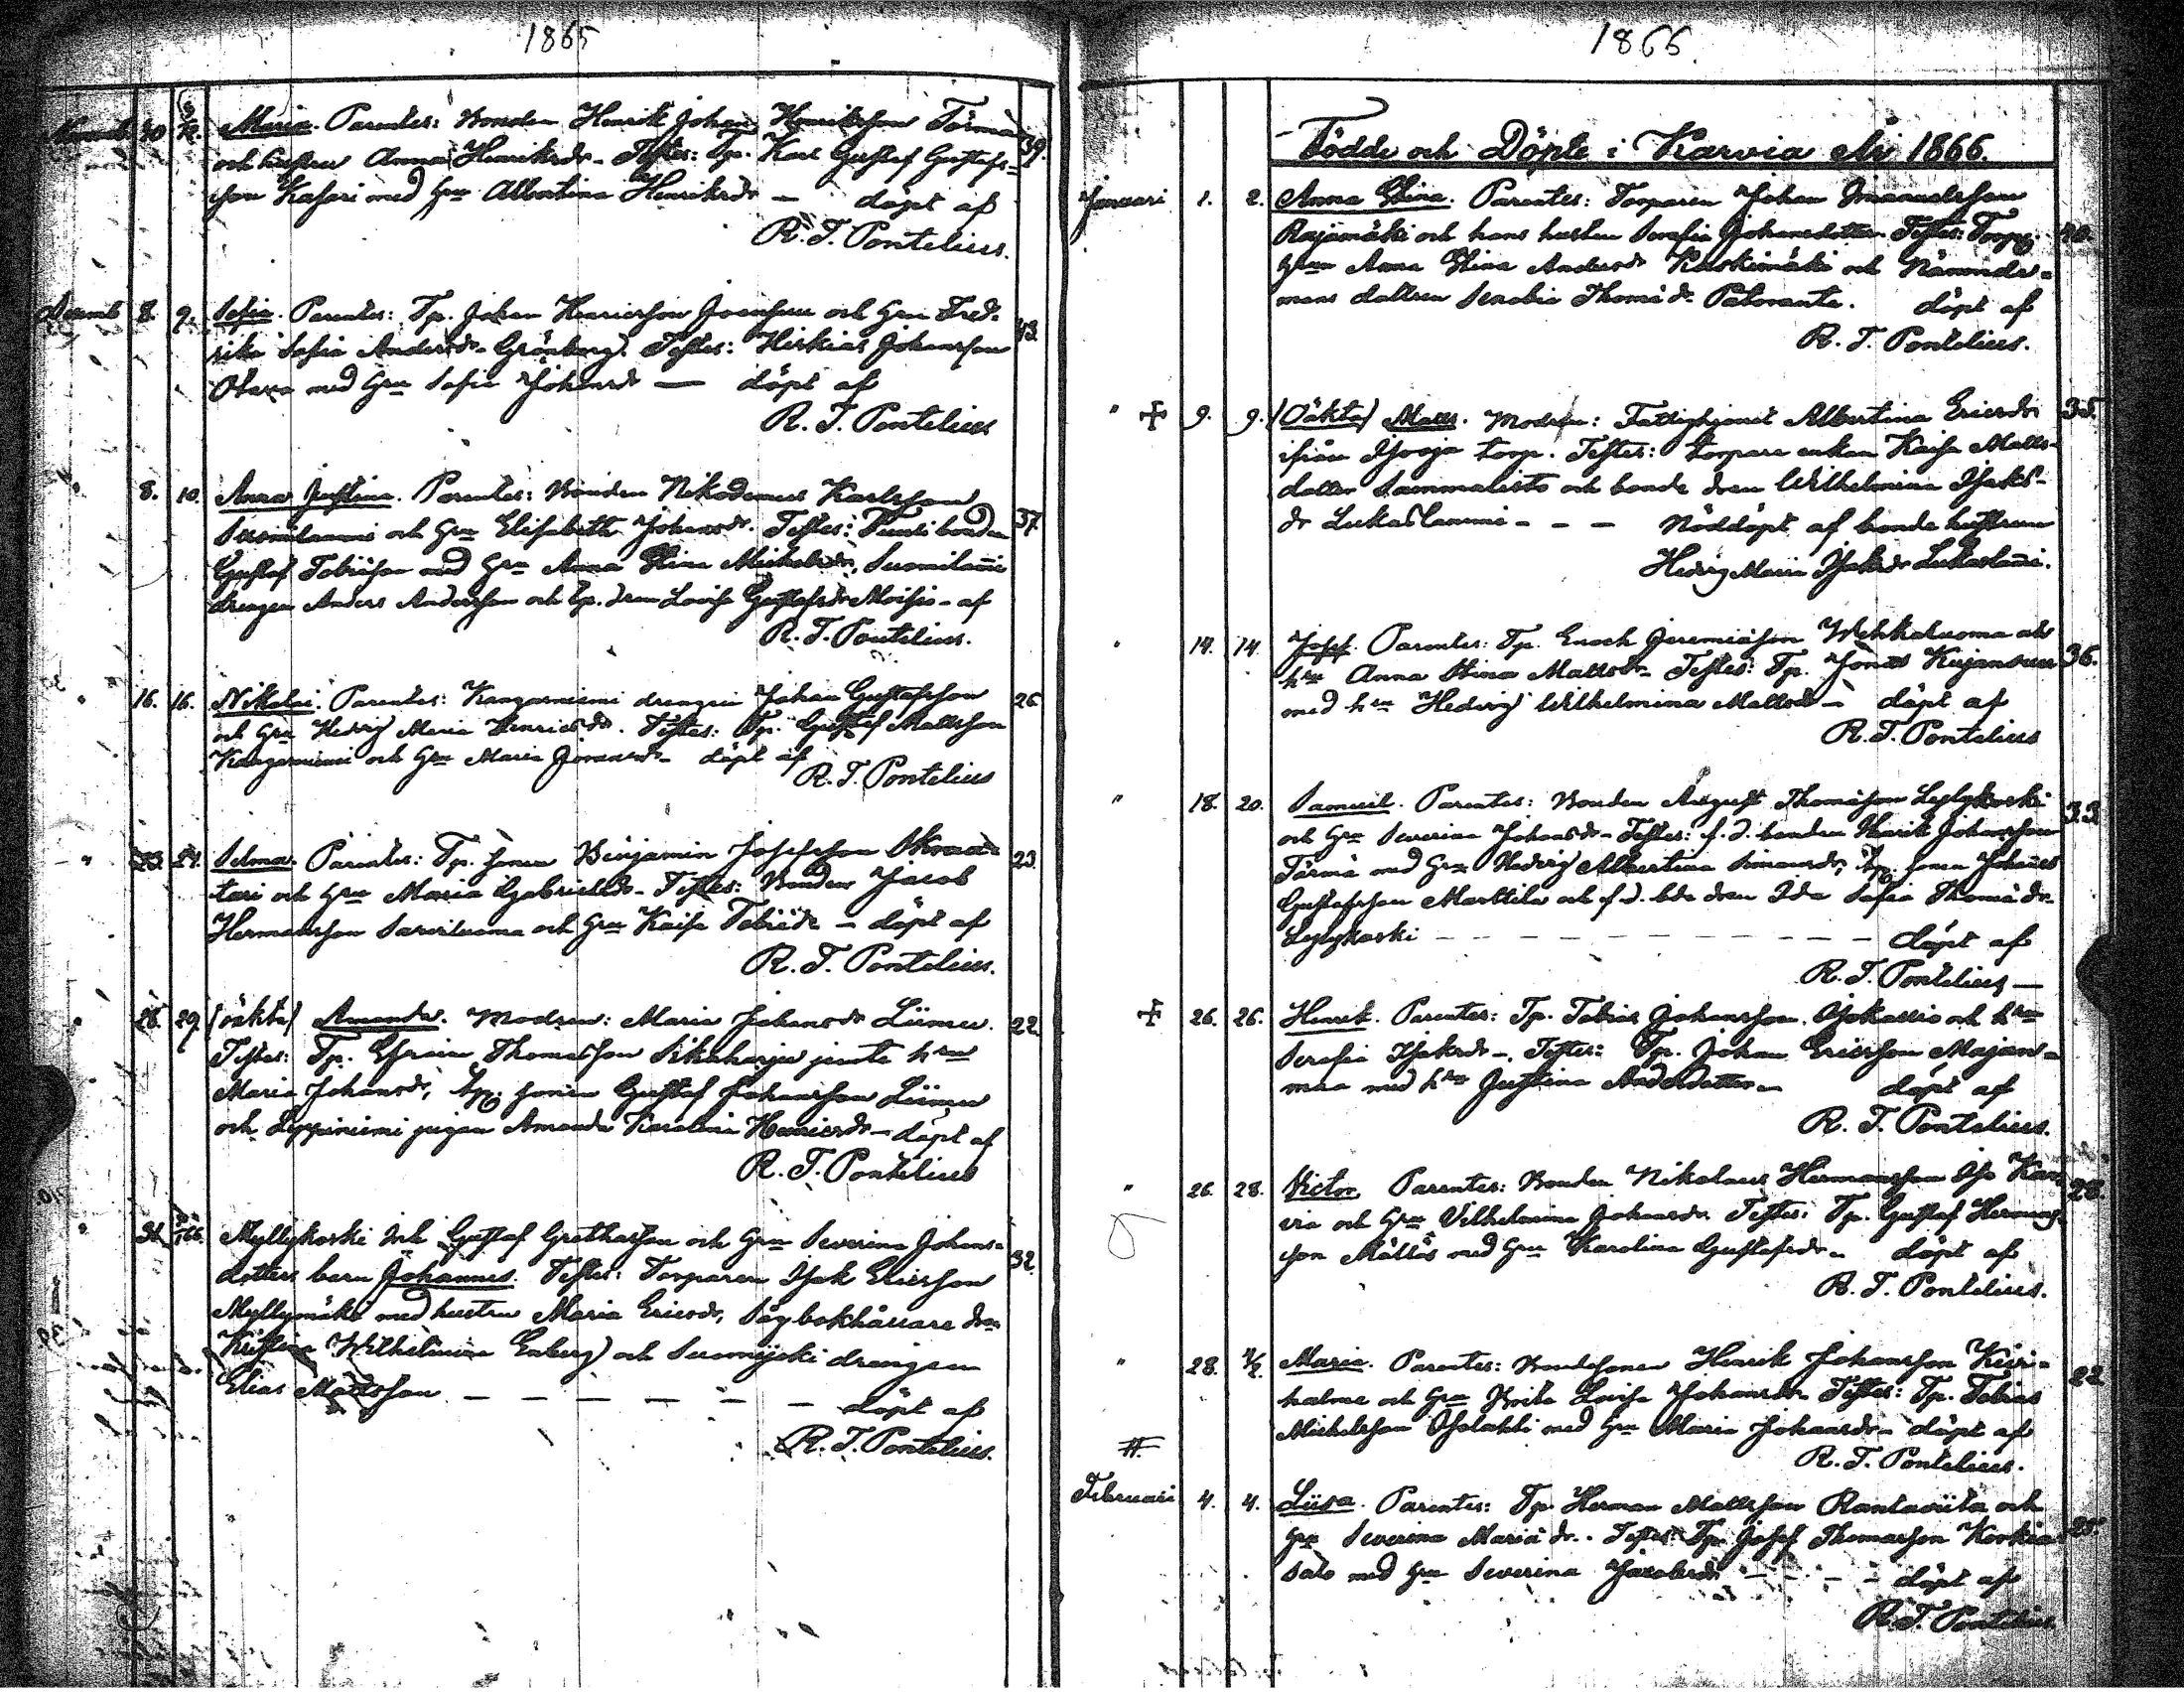 1865
Novemb. 30 3/12. Maria. Parentes: Bonden Henrik Johan Henriksson Törmä 39.
och hustru Anna Henriksdr. Testes: Tp. Karl Gustaf Gustafs=
son Kasari med Hru Albertina Henriksdr — döpt af
R. T. Pontelius.
Decemb 8. 9. Sofia. Parentes: Tp. Johan Henricsson Joensuu och Hru Fred= 43
rika Sofia Andersdr Grönberg. Testes: Hiskias Johansson
Otava med Hru Sofia Johansdr — döpt af
R. T. Pontelius
" 8. 10. Anna Justina. Parentes: Bonden Nikodemus Karlsson 37
Suomilammi och Hru Elisabeth Johansdr. Testes: bonden
Gustaf Tobiasson med Hru Anna Stina Michelsdr, Suomilam̄i
drengen Anders Andersson och tp. dren Lovisa Gustafsdr Moisio - af
R. T. Pontelius.
" 16. 16. Nikolai. Parentes: Kangasniemi drengen Johan Gustafsson 26
och Hru Hedvig Maria Henricsdr. Testes: Tp. Gustaf Mattsson
Kangasniemi och Hru Maria döpt af
R. T. Pontelius
" 23. 24. Selma. Parentes: Tp. sonen Benjamin Josefsson Skraa= 23.
tari och Hru Maria Gabrielsdr - Testes: Bonden Jacob
Hermansson Sarviluoma och Hru Kaisa Tobiædr — döpt af
R. T. Pontelius.
" 28. 29 (oäkta) Amanda. Modren: Maria Johansdr Liimu. 22
Testes: Tp. Efraim Thomasson Sikaharju jemte hru
Maria Johansdr, tp. sonen Gustaf Johansson Liimu
och Leppiniemi pigan Amanda Karolina Henricsdr — döpt af
R. T. Pontelius
" 31. 166. Myllykoski Gustaf och Hru Severina Johans= 32.
dotters barn Johannes. Testes: Torparen Isak Ericsson
Myllymäki med hustru Maria Ericsdr, Sågbokhållare dren
Kristina Wilhelmina Enberg och Suomijoki drengen
Elias Mattsson — — — — — — döpt af
R. T. Pontelius.
1866
Födde och Döpte i Karvia År 1866.
Januari 1. 2. Anna Stina. Parentes: Torparen Johan Immanuelsson
Rajamäki och hans hustru Serafia Johansdotter. Testes: Torp. 40.
Hrun Anna Stina Andersdr Kuskimäki och Nämnde=
mans dottren Serafia Thomædr Patoranta. döpt af
R. T. Pontelius.
" ✝ 9. 9. (Oäkta) Matts. Modren: Fattighjonet Albertina Ericsdr 35.
ifrån Isooja torp. Testes: torpare enkan Kaisa Matts=
dotter Sammalisto och bonde dren Wilhelmina Isaks=
dr Lukaslammi - - - Nöddöpt af bonde hustrun
Hedvig Maria Isaksdr Lukaslam̄i.
" 14. 14. Josef. Parentes: Tp. Enoch Jeremiasson Wehkaluoma och 36.
hru Anna Stina Mattsdr — Testes: Tp. Jonas Kujansuu
med hru Hedvig Wilhelmina Mattsdr — döpt af
R. T. Pontelius
" 18. 20. Samuel. Parentes: Bonden August Thomasson Lylykoski 33
och Hru Severina Johansdr — Testes: f. d. bonden Henrik Johansson
Törmä med Hru Hedvig Albertina Simonsdr, tp. sonen Johannes
Gustafsson Marttila och f. d. bde dren Ida Sofia Thomædr
Lylykoski — — — — — — döpt af
R. T. Pontelius —
✝ 26. 26. Henrik. Parentes: Tp. Tobias Johansson och hru
Serafia Isaksdr —. Testes: Tp. Johan Ericsson Majan=
maa med hru Justina Andersdotter — döpt af
R. T. Pontelius.
" 26. 28. Victor. Parentes: Bonden Nikolaus Hermansson Iso Kar= 28.
via och Hru Vilhelmina Johansdr. Testes: Tp. Gustaf Hermans=
son Mättös med Hru Karolina Gustafsdr — döpt af
R. T. Pontelius.
" 28. 4/2. Maria. Parentes: Bondesonen Henrik Johansson Kivi= 22
halme och Hru Brita Lovisa Johansdr. Testes: Tp. Tobias
Michelsson med Hru Maria Johansdr — döpt af
R. T. Pontelius.
Februari 4. 4. Liisa. Parentes: Tp. Herman Mattsson Rantaviita och 25.
Hru Severina Mariædr.. Testes: Tp. Josef Thomasson Korkia
salo med Hru Severina Jacobsdr - - - - döpt af
R. T. Pontelius.